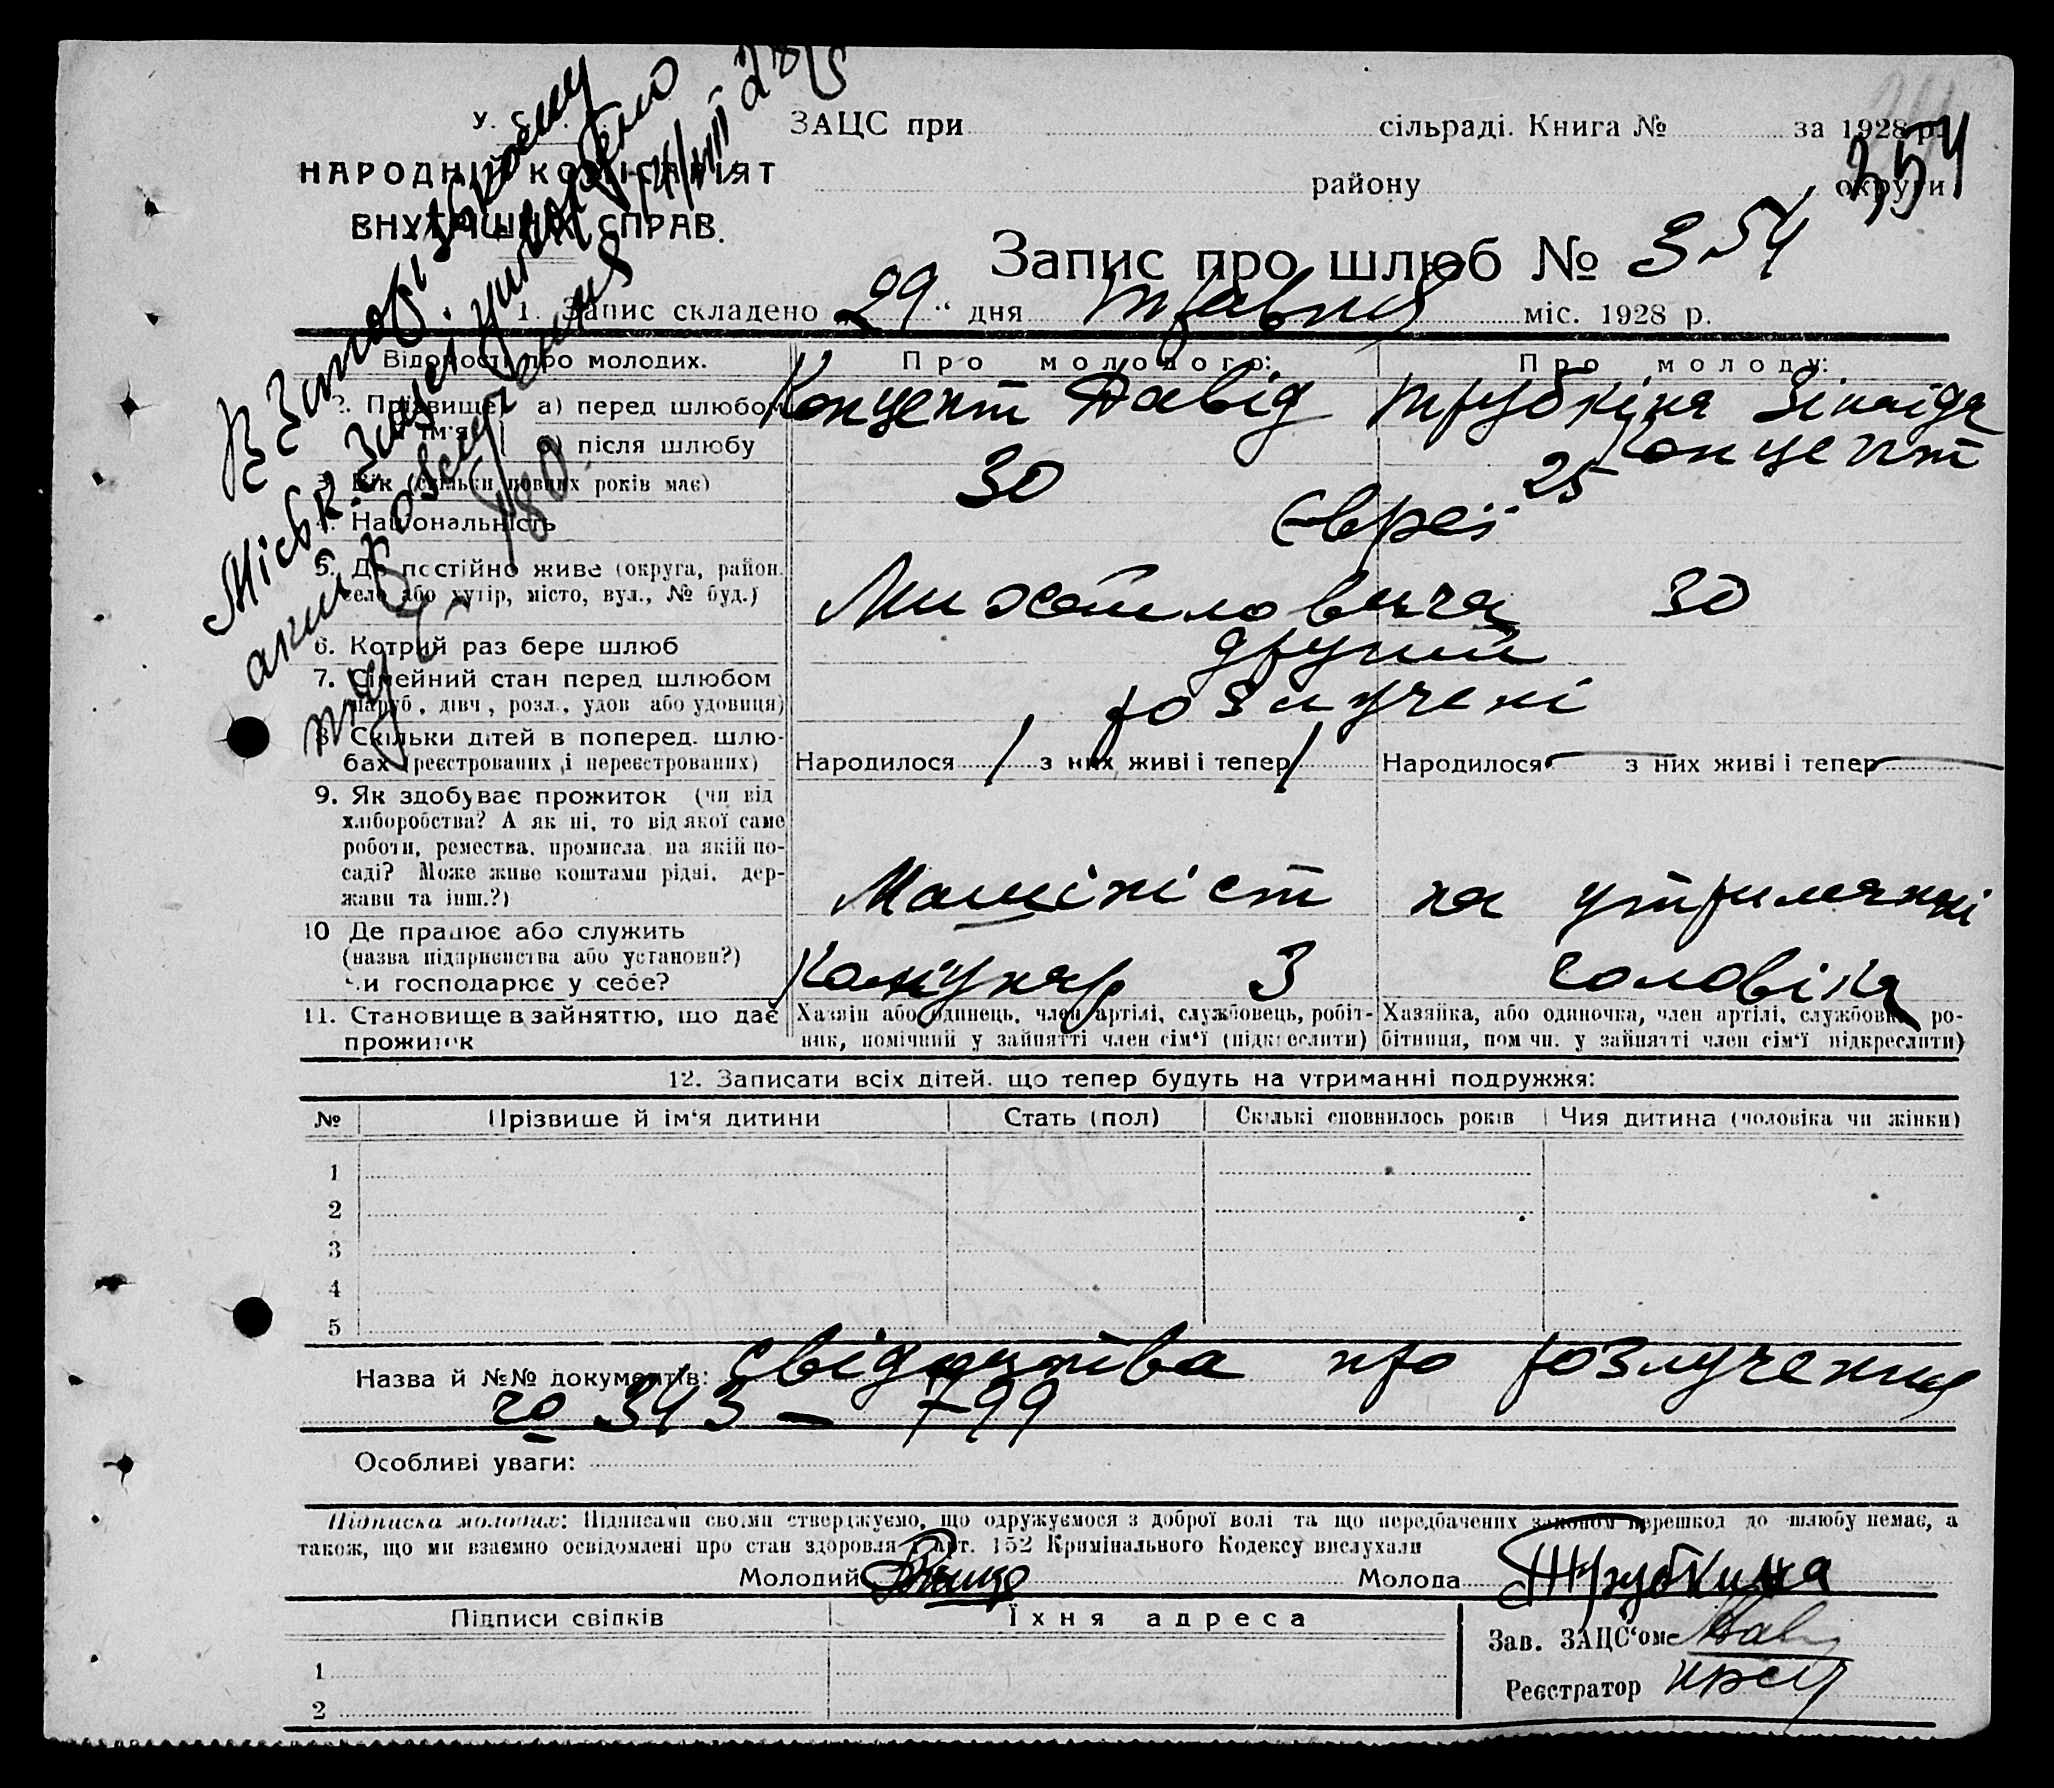 354
У. С.
ЗАЦС при сільраді. Книга № за 1928 р.
НАРОДНІЙ КОМІСАРІЯТ
ВНУТРІШНІХ СПРАВ.
району округи
Запис про шлюб № 354
1. Запис складено „29“ дня травня міс. 1928 р.
Відомость про молодих. Про молодого: Про молоду:
2. Прізвище й ім'я а) перед шлюбом Концепт Давід Трубкіна Зінаіда
б) після шлюбу Концепт
3. Вік (скільки повних років має) 30 25
4. Національність Євреї
5. Де постійно живе (округа, район, село або хутір, місто, вул., № буд.) Михайловича 30
6. Котрий раз бере шлюб другий
7. Сімейний стан перед шлюбом розлучені
(паруб., дівч., розл., удов або удовиця)
8. Скільки дітей в поперед. шлюбах (реєстрованих і нереєстрованих) Народилося 1 з них живі і тепер 1 Народилося — з них живі і тепер —
9. Як здобуває прожиток (чи від
хліборобства? А як ні, то від якої саме
роботи, ремества, промисла, на якій по-
саді? Може живе коштами рідні, дер-
жави та інш.?) Машініст на утриманні
10 Де працює або служить
(назва підприємства або установи?)
чи господарює у себе? Комунар 3 чоловіка
11. Становище в зайняттю, що дає
прожиток
Хазяїн або одинець, член артілі, службовець, робіт-
ник, помічний у зайнятті член сім'ї (підкреслити)
Хазяйка, або одиночка, член артілі, службовка, ро-
бітниця, пом чн. у зайнятті член сім'ї підкреслити)
12. Записати всіх дітей, що тепер будуть на утриманні подружжя:
№ Прізвище й ім'я дитини Стать (пол) Скількі сповнилось років Чия дитина (чоловіка чи жінки)
1
2
3
4
5
Назва й №№ документів: свідоцтва про розлучення
343 – 799
Особливі уваги:
Підписка молодих: Підписами своїми стверджуємо, що одружуємося з доброї волі та що передбачених законом перешкод до шлюбу немає, а
також, що ми взаємно освідомлені про стан здоровля і арт. 152 Кримінального Кодексу вислухали
Молодий Молода Трубкина
Підписи свідків Їхня адреса
Зав. ЗАЦС'ом
1
Реєстратор
2